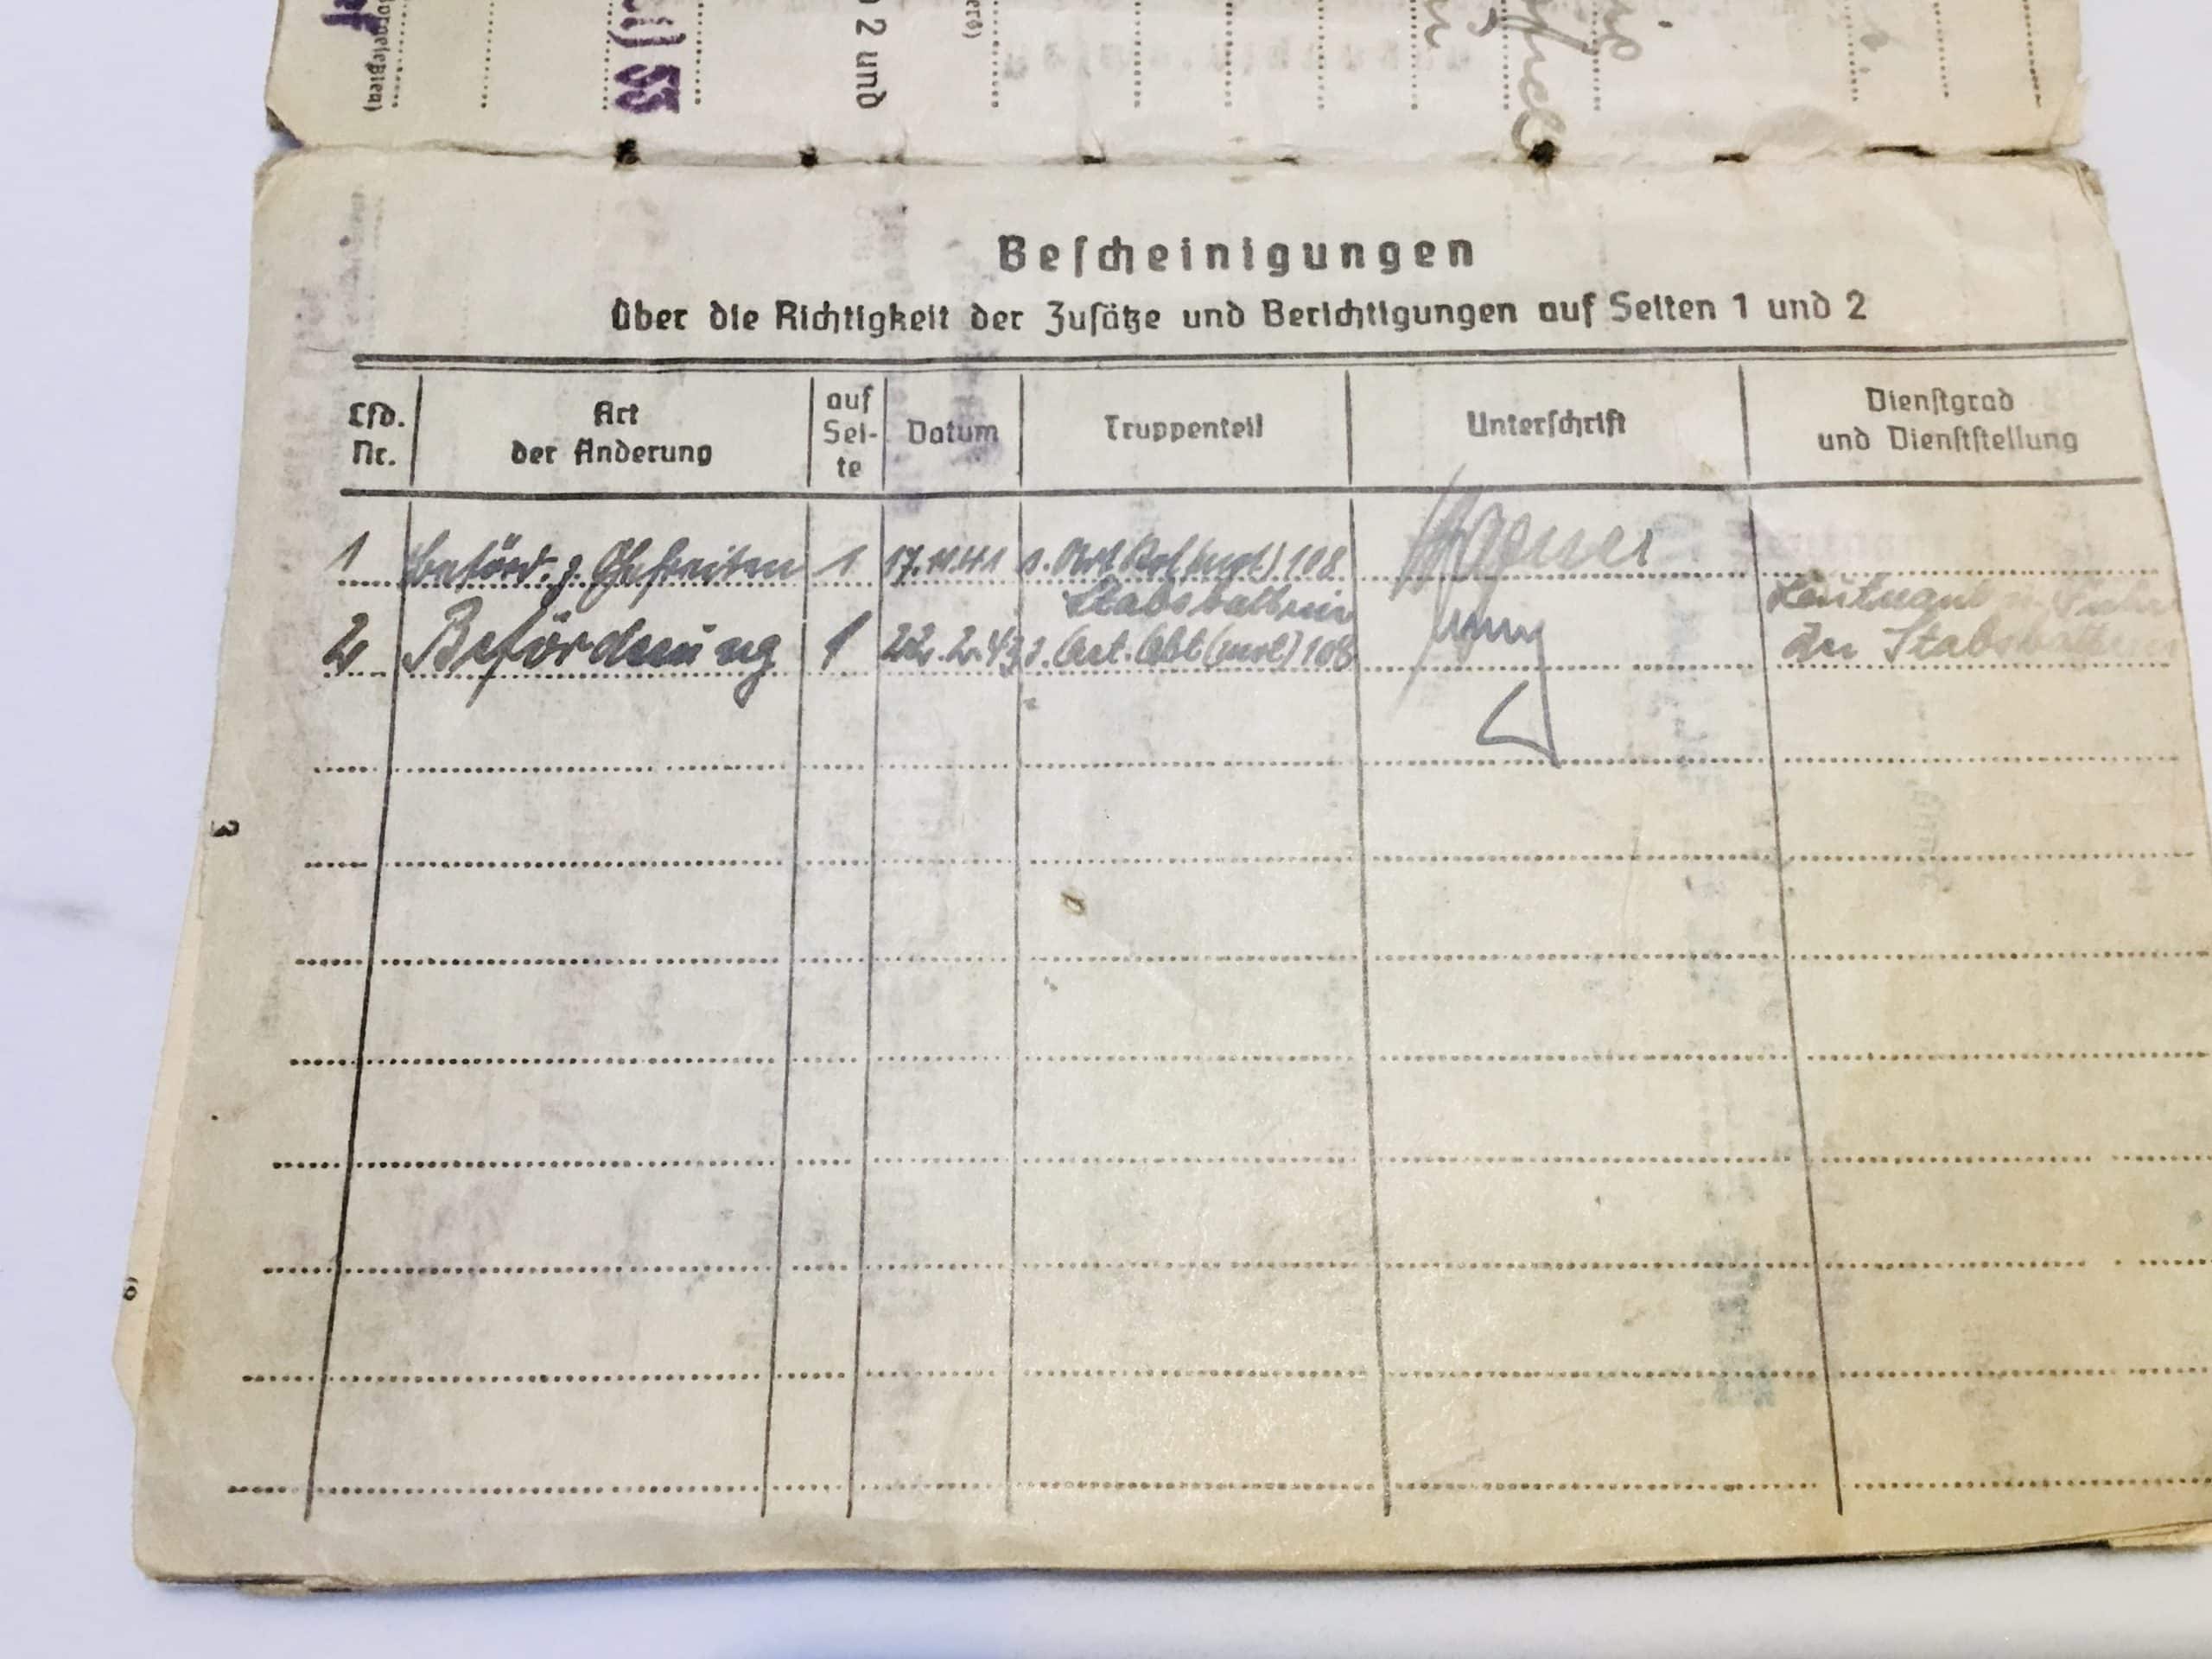 2 und
Bescheinigungen
über die Richtigkeit der Zusätze und Berichtigungen auf Seiten 1 und 2
Lfd. Nr.
Art der Änderung
auf Sei-te
Datum
Truppenteil
Unterschrift
Dienstgrad und Dienststellung
1 Beförd. z. Gefreiten 1 17.11.41 108 Wagner
Stabsbatterie
2 Beförderung 1 22.2.43 s. Art. Abt (mot) 108
Leutnant u.
der Stabsbatterie
3
9